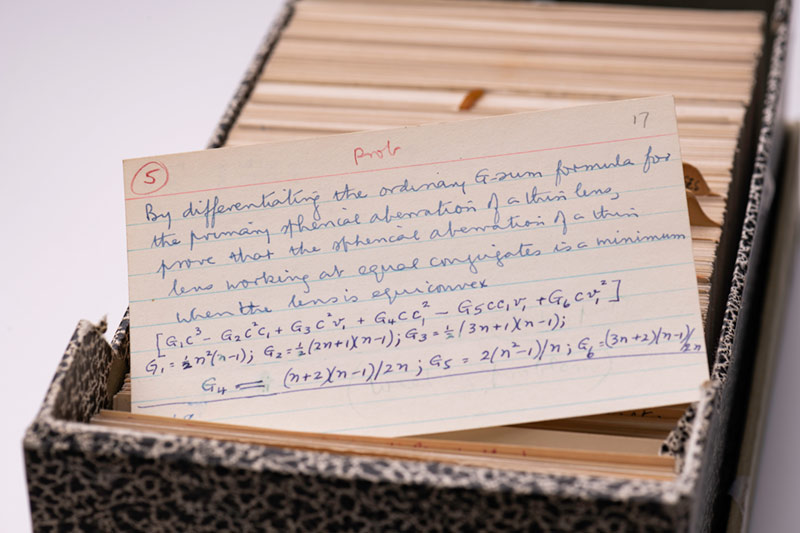 5 Prob 17
By differentiating the ordinary G-sum formula for
the primary spherical aberration of a thin lens,
prove that the spherical aberration of a thin
lens working at equal conjugates is a minimum
when the lens is equiconvex
[G₁c³ - G₂c²c₁ + G₃c²v₁ + G₄cc₁² - G₅cc₁v₁ + G₆cv₁²]
G₁ = ½n²(n-1); G₂ = ½(2n+1)(n-1); G₃ = ½(3n+1)(n-1);
G₄ = (n+2)(n-1)/2n; G₅ = 2(n²-1)/n; G₆ = (3n+2)(n-1)/2n